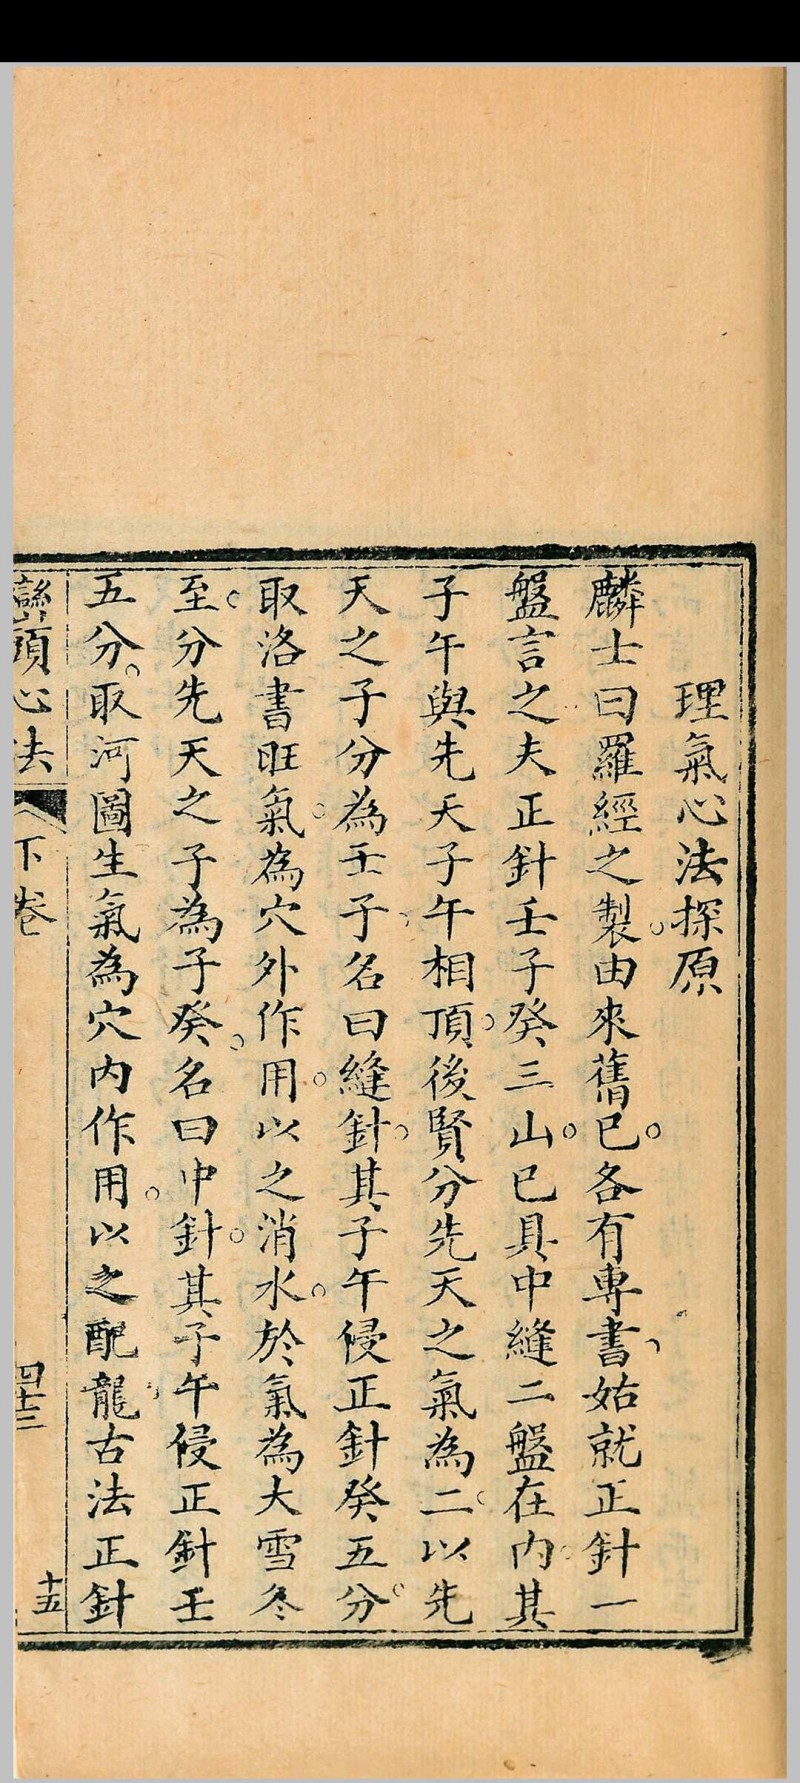 理氣心法探原
麟士曰羅經之製。由來舊已。各有專書、姑就正針一
盤言之夫正針壬子癸三山。已具中縫二盤在内。其
子午與先天子午相頂。後賢分先天之氣為二。以先
天之子分為壬子、名曰縫針。其子午侵正針癸五分。
取洛書旺氣。為穴外作用。以之消水。於氣為大雪冬
至。分先天之子為子癸。名曰中針。其子午侵正針壬
五分。取河圖生氣為穴内作用。以之配龍、古法正針
巒頭心法
下卷
四十三
十五